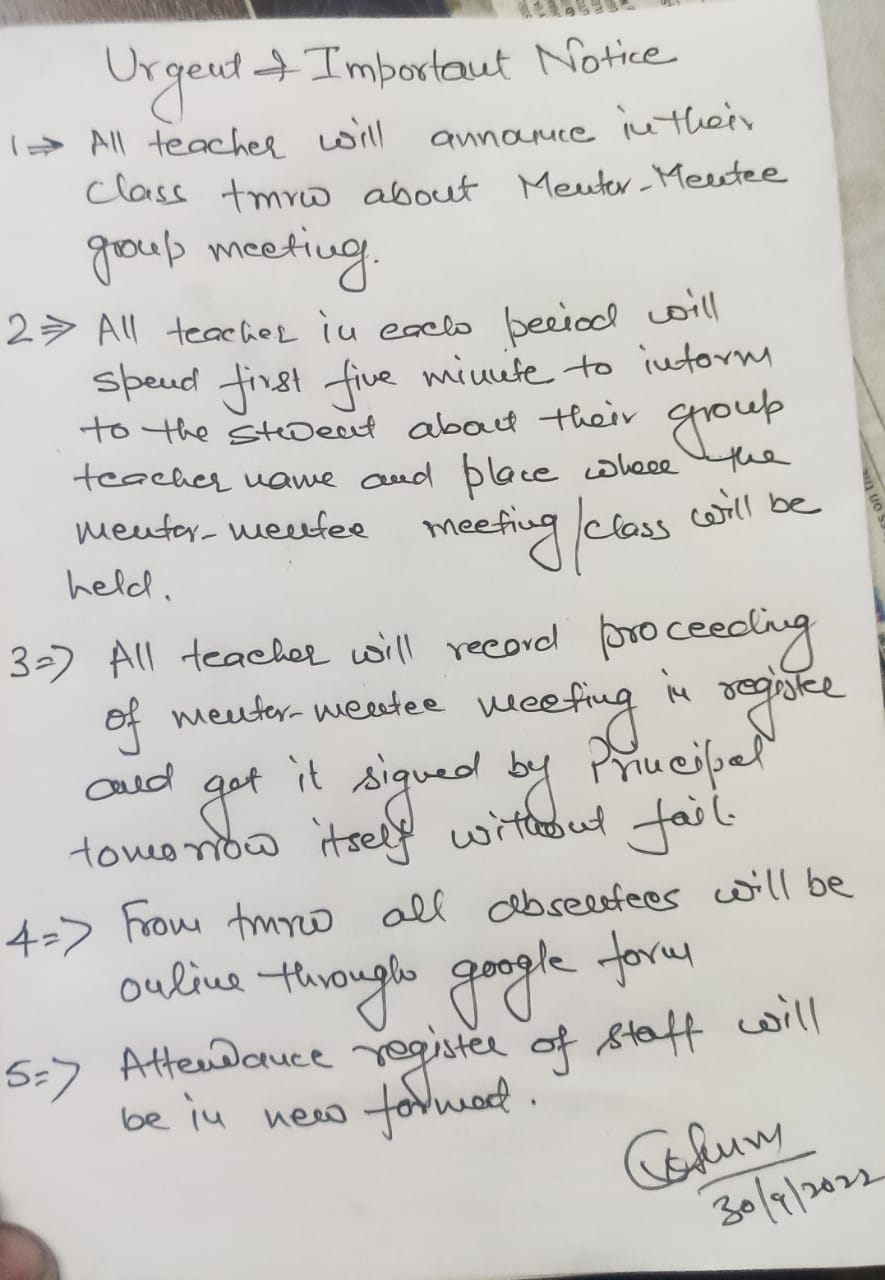 Urgent & Important Notice
1⇒ All teacher will announce in their
class tmrw about Mentor-Mentee
group meeting.
2⇒ All teacher in each period will
spend first five minute to inform
to the student about their group
teacher name and place where the
mentor-mentee meeting/class will be
held.
3⇒ All teacher will record proceeding
of mentor-mentee meeting in register
and get it signed by Principal
tomorrow itself without fail.
4=> From tmrw all absentees will be
online through google form
5=> Attendance register of staff will
be in new format.
30/9/2022